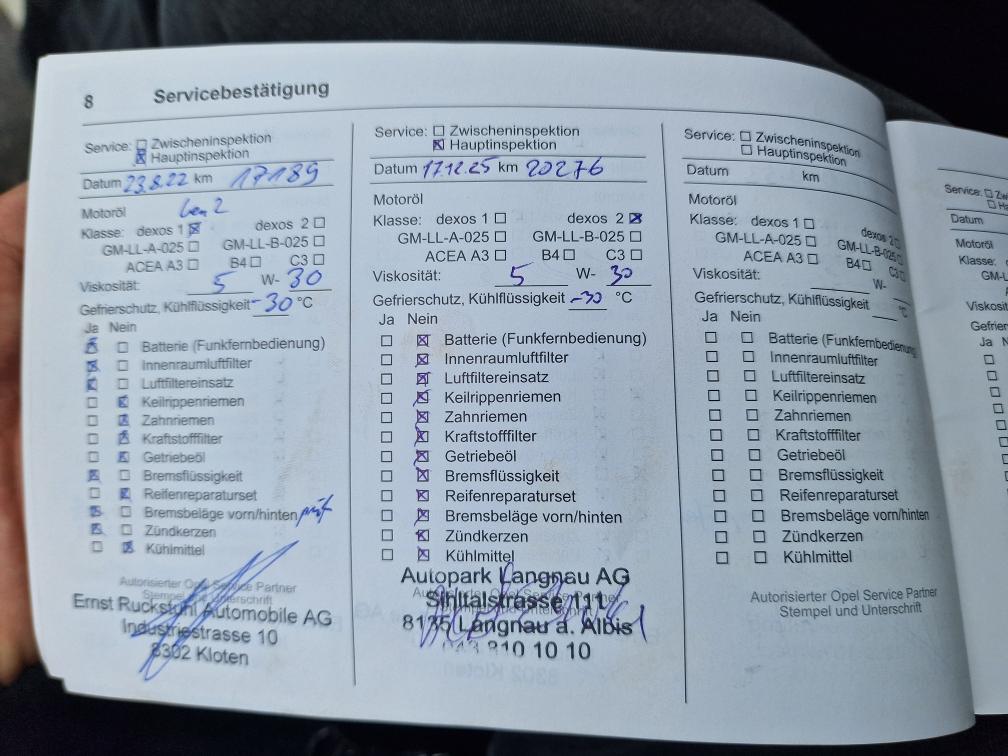 8 Servicebestätigung
Service: Zwischeninspektion
Hauptinspektion
Datum 23.8.22 km 17189
Motoröl
Klasse: dexos 1 dexos 2
GM-LL-A-025 GM-LL-B-025
ACEA A3 B4 C3
Viskosität: 5 W- 30
Gefrierschutz, Kühlflüssigkeit -30 °C
Ja Nein
Batterie (Funkfernbedienung)
Innenraumluftfilter
Luftfiltereinsatz
Keilrippenriemen
Zahnriemen
Kraftstofffilter
Getriebeöl
Bremsflüssigkeit
Reifenreparaturset
Bremsbeläge vorn/hinten
Zündkerzen
Kühlmittel
Autorisierter Opel Service Partner
Stempel und Unterschrift
Ernst Ruckstuhl Automobile AG
Industriestrasse 10
8302 Kloten
Service: Zwischeninspektion
Hauptinspektion
Datum 17.12.25 km 20276
Motoröl
Klasse: dexos 1 dexos 2
GM-LL-A-025 GM-LL-B-025
ACEA A3 B4 C3
Viskosität: 5 W- 30
Gefrierschutz, Kühlflüssigkeit -30 °C
Ja Nein
Batterie (Funkfernbedienung)
Innenraumluftfilter
Luftfiltereinsatz
Keilrippenriemen
Zahnriemen
Kraftstofffilter
Getriebeöl
Bremsflüssigkeit
Reifenreparaturset
Bremsbeläge vorn/hinten
Zündkerzen
Kühlmittel
Autopark Langnau AG
Sihltalstrasse 111
8135 Langnau a. Albis
043 810 10 10
Service: Zwischeninspektion
Hauptinspektion
Datum km
Motoröl
Klasse: dexos 1 dexos 2
GM-LL-A-025 GM-LL-B-025
ACEA A3 B4 C3
Viskosität: W-
Gefrierschutz, Kühlflüssigkeit °C
Ja Nein
Batterie (Funkfernbedienung)
Innenraumluftfilter
Luftfiltereinsatz
Keilrippenriemen
Zahnriemen
Kraftstofffilter
Getriebeöl
Bremsflüssigkeit
Reifenreparaturset
Bremsbeläge vorn/hinten
Zündkerzen
Kühlmittel
Autorisierter Opel Service Partner
Stempel und Unterschrift
Service:
Datum
Motoröl
Ja